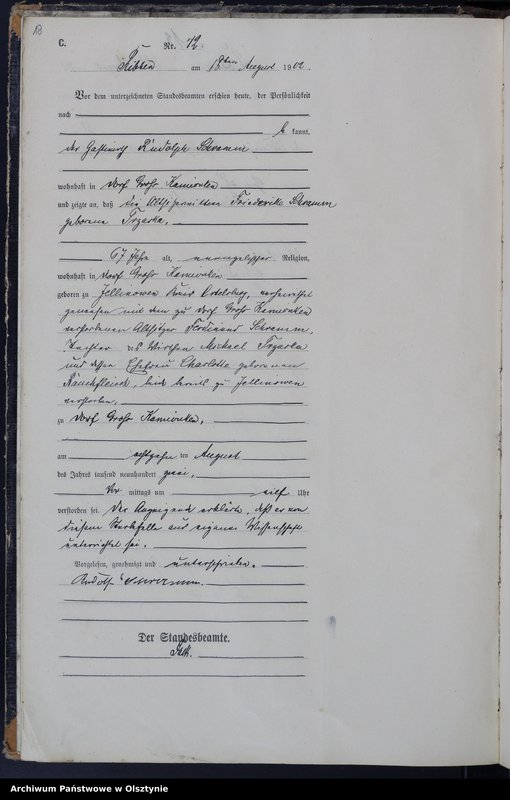 18
C.
Nr. 12.
Ribben am 18ten August 1902.
Vor dem unterzeichneten Standesbeamten erschien heute, der Persönlichkeit
nach
be kannt,
der Gastwirth Rudolph Schramm
wohnhaft in Dorf Groß Kamionken
und zeigte an, daß die Altsitzerwittwe Friederike Schramm
geborene Trzaska,
67 Jahre alt, evangelischer Religion,
wohnhaft in Dorf Groß Kamionken
geboren zu Jellinowen Kreis Ortelsburg, verheirathet
gewesen mit dem zu Dorf Groß Kamionken
verstorbenen Altsitzer Ferdinand Schramm,
Tochter des Wirthen Michael Trzaska
und dessen Ehefrau Charlotte geborenen
beide bereits zu Jellinowen
verstorben,
zu Dorf Groß Kamionken,
am achtzehn ten August
des Jahres tausend neunhundert zwei,
Vor mittags um elf Uhr
verstorben sei. Der Anzeigende erklärte, daß er von
diesem Sterbefalle aus eigener Wissenschaft
unterrichtet sei.
Vorgelesen, genehmigt und unterschrieben.
Rudolf Schramm.
Der Standesbeamte.
Archiwum Państwowe w Olsztynie